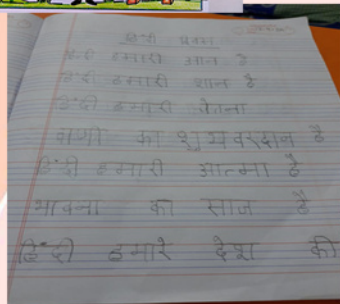 हिन्दी
हिन्दी हमारी आन है
हिन्दी हमारी शान है
हिन्दी हमारी चेतना
वाणी का शुभ वरदान है
हिंदी हमारी आत्मा है
भावना का साज है
हिंदी हमारे देश की